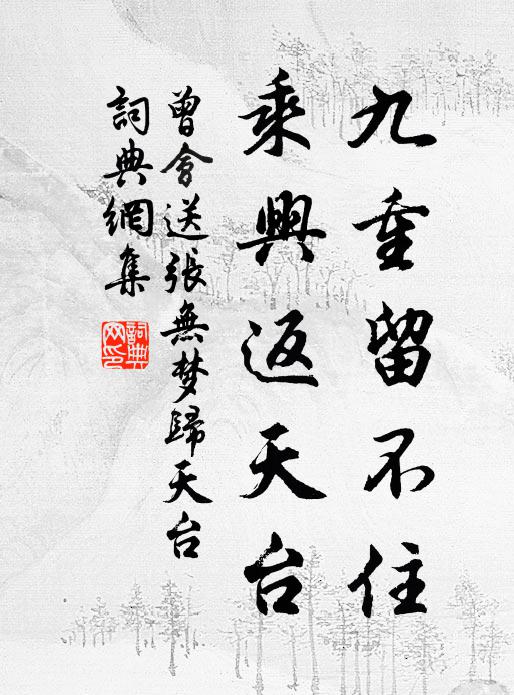 九重留不住
乘興返天台
曾會送張無梦歸天台
詞典網集
詞典網印